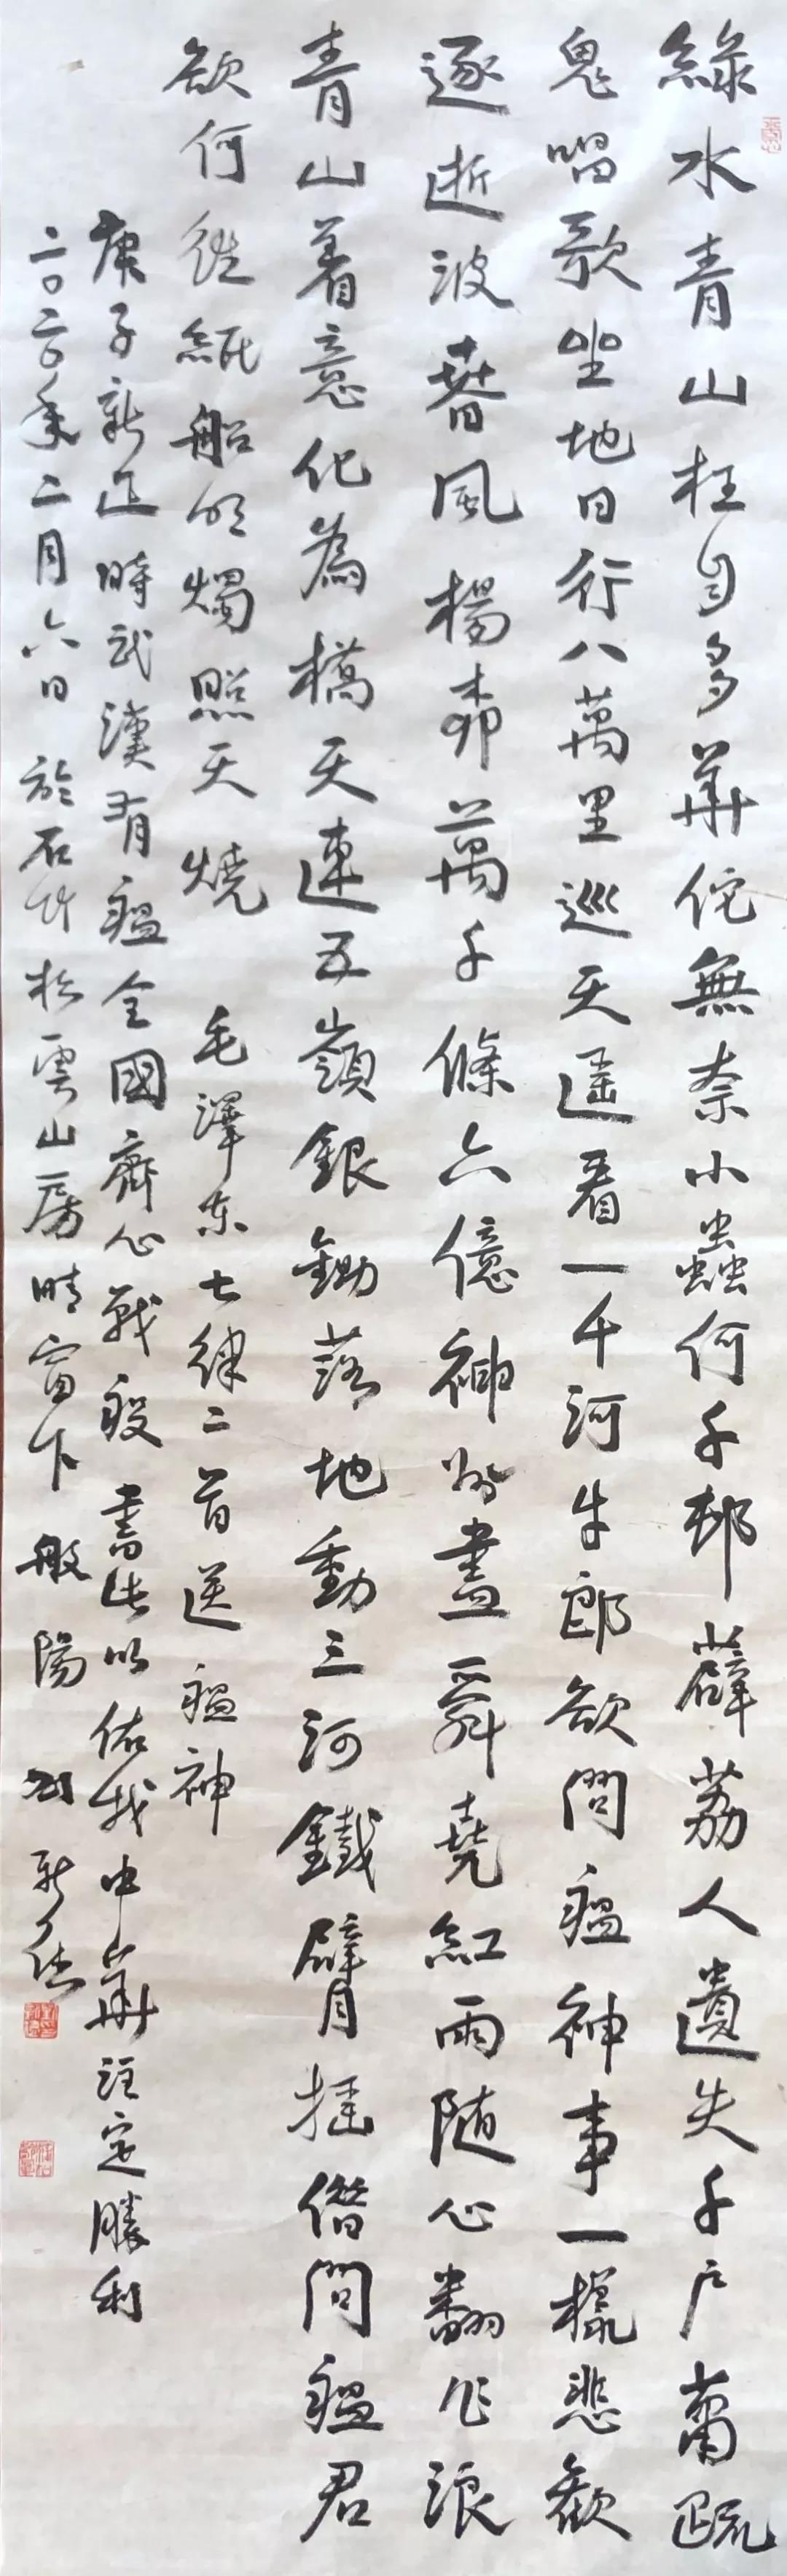 綠水青山枉自多華佗無奈小蟲何千邨薜荔人遺失千戶蕭疏
鬼唱歌坐地日行八萬里巡天遥看一千河牛郎欲問瘟神事一樣悲歡
逐逝波春風楊柳萬千條六億神州盡舜堯紅雨随心翻作浪
青山着意化為橋天連五嶺銀鋤落地動三河鐵臂搖借問瘟君
欲何往紙船明燭照天燒 毛澤东七律二首送瘟神
庚子新正時武漢有瘟全國齊心戰疫書此以佑我中華註定勝利
二〇二〇年二月六日於石竹松雲山房晴窗下般陽